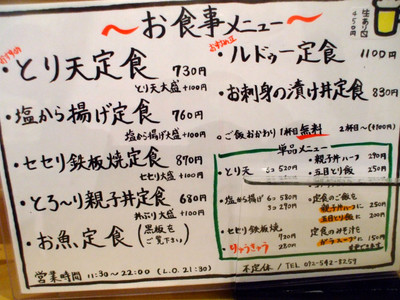 生ありマス
450円
〜お食事メニュー〜
おすすめ
・とり天定食 730円
とり天大盛+100円
・塩から揚げ定食 760円
塩から揚げ大盛+100円
・セセリ鉄板焼定食 890円
セセリ大盛+100円
・とろ〜り親子丼定食 680円
丼ぶり大盛+100円
・お魚定食 (黒板をご覧下さい)
営業時間 11:30〜22:00 (L.O. 21:30)
・ルドゥー定食 1100円
・お刺身の漬け丼定食 830円
ご飯おかわり 1杯目無料 2杯目〜(+100円)
単品メニュー
・とり天 6コ 520円
・塩から揚げ 6コ 580円
3コ 290円
・セセリ鉄板焼 730円
・りゅうきゅう 280円
・親子丼ハーフ 290円
・五目とり飯 250円
・定食のご飯を
親子丼ハーフに 250円
五目とり飯に 200円
・定食のみそ汁を
不定休/TEL 092-542-8259